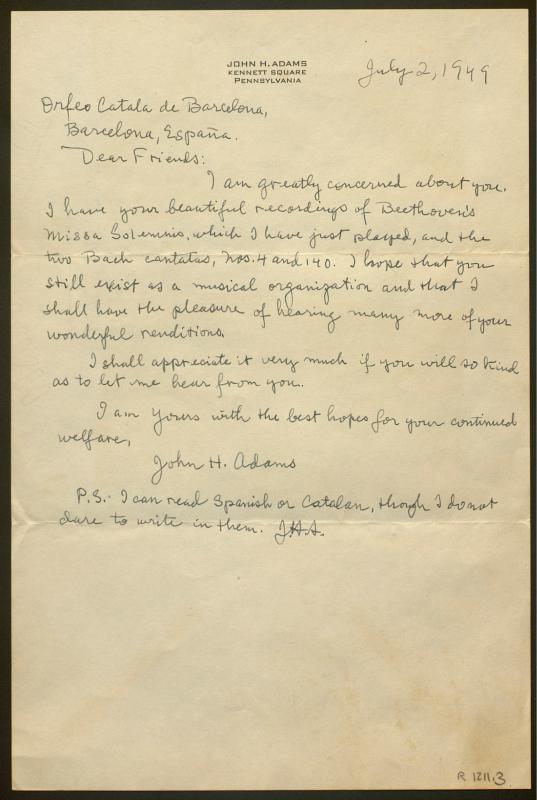 JOHN H. ADAMS
KENNETT SQUARE
PENNSYLVANIA
July 2, 1949
Orfeo Catala de Barcelona,
Barcelona, España.
Dear Friends:
I am greatly concerned about you.
I have your beautiful recordings of Beethoven's
Missa Solemnis, which I have just played, and the
two Bach cantatas, Nos. 4 and 140. I hope that you
still exist as a musical organization and that I
shall have the pleasure of hearing many more of your
wonderful renditions.
I shall appreciate it very much if you will so kind
as to let me hear from you.
I am yours with the best hopes for your continued
welfare,
John H. Adams
P.S.: I can read Spanish or Catalan, though I do not
dare to write in them. J.H.A.
R 1211.3